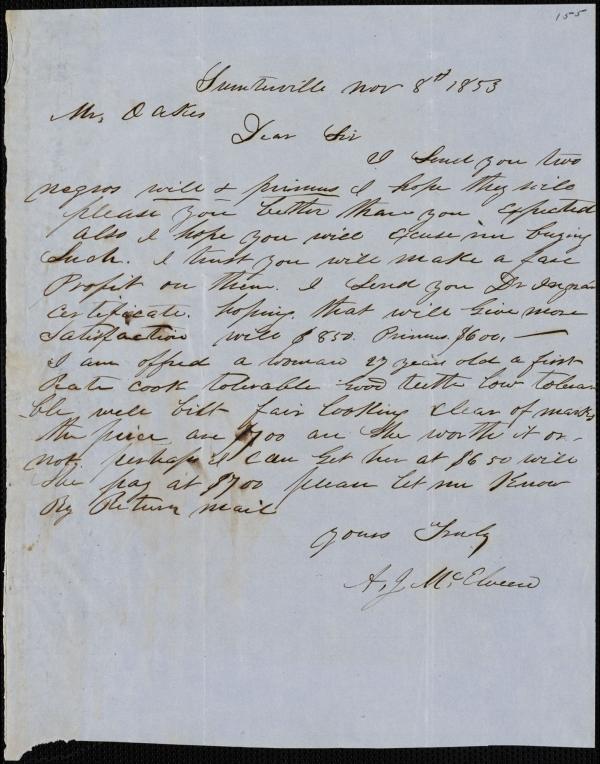 155
Sumterville Nov 8th 1853
Mr. Oakes
Dear Sir
I Send you two
negros will & primus I hope they will
please you better than you Expected
also I hope you will Excuse me buying
Such. I trust you will make a fair
Profit on them. I Send you Dr Ingram
certificate. hoping that will Give more
Satisfaction will $850. Primus $600. —
I am offred a woman 27 years old a first
Rate cook tolerable Good teeth low tolera
ble well bilt fair looking clear of marks
the price are $700 are She worth it or
not. perhaps I can Get her at $650 will
She pay at $700 please let me Know
By Return mail
yours Truly
A. J. McElveen